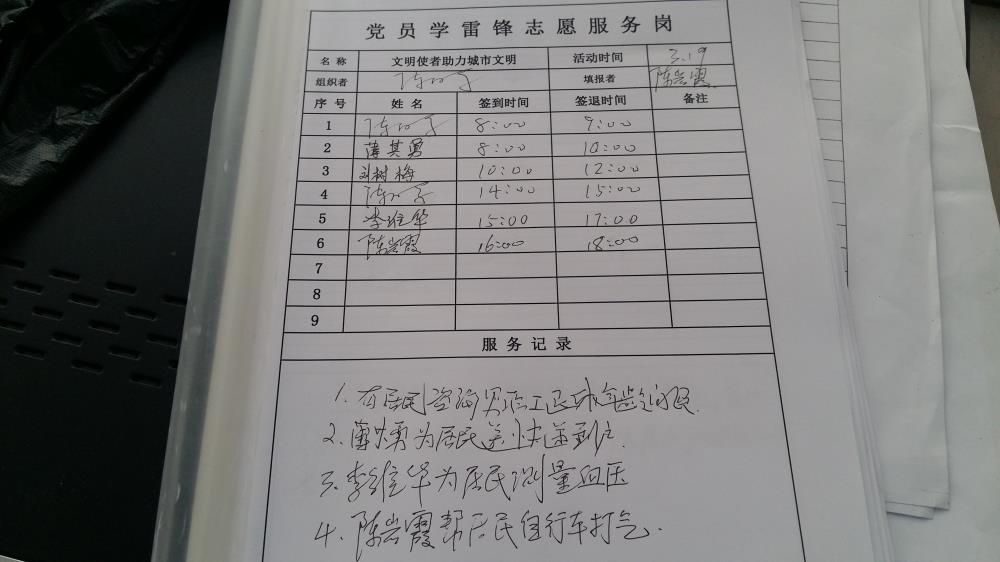 党员学雷锋志愿服务岗
名称 文明使者助力城市文明 活动时间 3.19
组织者 填报者 陈岩霞
序号 姓名 签到时间 签退时间 备注
1 8:00 9:00
2 薄其勇 8:00 10:00
3 刘树梅 10:00 12:00
4 14:00 15:00
5 李维华 15:00 17:00
6 陈岩霞 16:00 18:00
7
8
9
服务记录
1、有居民咨询男职工退休年龄问题
2、薄其勇为居民送快递到户
3、李维华为居民测量血压
4、陈岩霞帮居民自行车打气